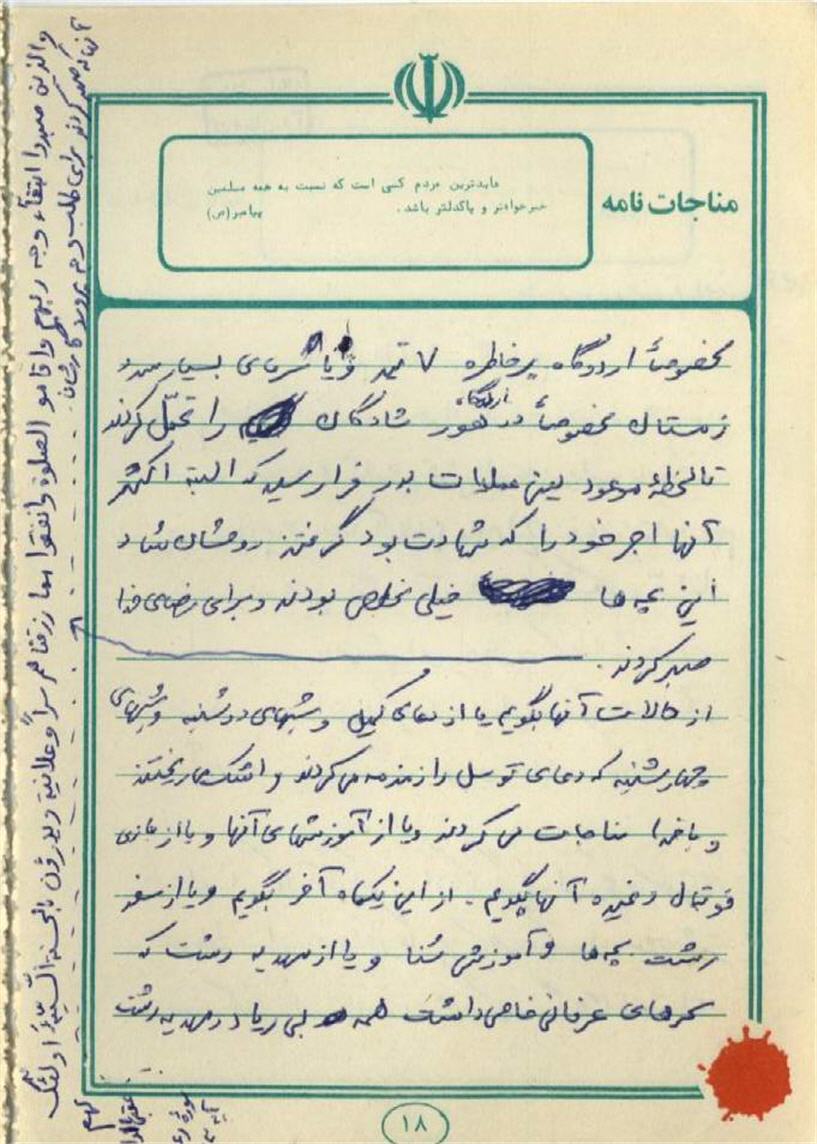 مناجات نامه
عابدترین مردم کسی است که نسبت به همه مسلمین
خیرخواهتر و پاکدلتر باشد. پیامبر(ص)
مخصوصاً اردوگاه پرخاطره ۷ تیر و یا سرمای بسیار سرد
زمستان مخصوصاً در اردوگاه هور شادگان را تحمّل کردند
تا لحظهٔ موعود یعنی عملیات بدر فرا رسید که البته اکثر
آنها اجر خود را که شهادت بود گرفتند روحشان شاد
این بچه ها خیلی مخلص بودند و برای رضای خدا
صبر کردند.
از حالات آنها بگویم یا از دعای کمیل و شبهای دوشنبه و شبهای
چهارشنبه که دعای توسل را زمزمه می کردند و اشک می ریختند
و با خدا مناجات می کردند و یا از آموزشهای آنها و یا از بازی
فوتبال و غیره آنها بگویم. از این یکماه آخر بگویم و یا از سفر
رشت بچه ها و آموزش شنا و یا از مهدیه رشت که
سحرهای عرفانی خاصی داشت همه بی ریا در مهدیه رشت
۱۸
آنانکه صبر کردند برای طلب وجه پروردگارشان
والذین صبروا ابتغاء وجه ربهم واقاموا الصلوة وانفقوا مما رزقناهم سراً وعلانیة ویدرؤن بالحسنة السّیئة اولئک
لهم عقبی الدار
سورهٔ رعد
آیه